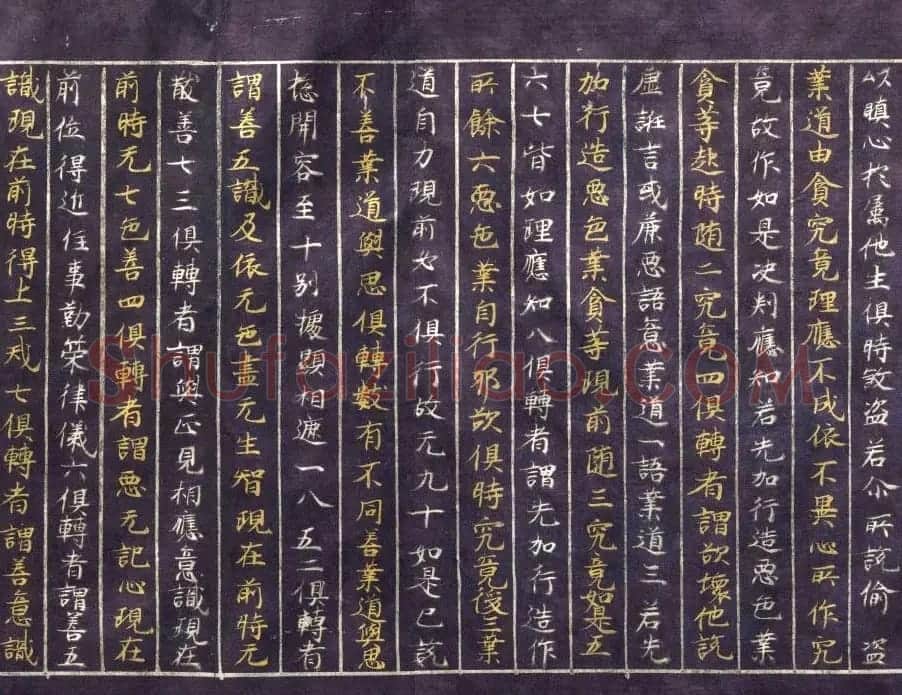 以瞋心於屬他生俱時煞盜若尒所說偷盜
業道由貪究竟理應不成依不異心所作究
竟故作如是决判應知若先加行造惡色業
貪等起時随二究竟四俱轉者謂欲壞他說
虛誑言或麁惡語意業道一語業道三若先
加行造惡色業貪等現前随三究竟如是五
六七皆如理應知八俱轉者謂先加行造作
所餘六惡色業自行邪欲俱時究竟後三業
道自力現前女不俱行故无九十如是已說
不善業道與思俱轉數有不同善業道與思
惣開容至十別據顯相遮一八五二俱轉者
謂善五識及依无色盡无生智現在前時无
散善七三俱轉者謂與正見相應意識現在
前時无七色善四俱轉者謂惡无記心現在
前位得近住事勤策律儀六俱轉者謂善五
識現在前時得上三戒七俱轉者謂善意識
Shufaziliao.com